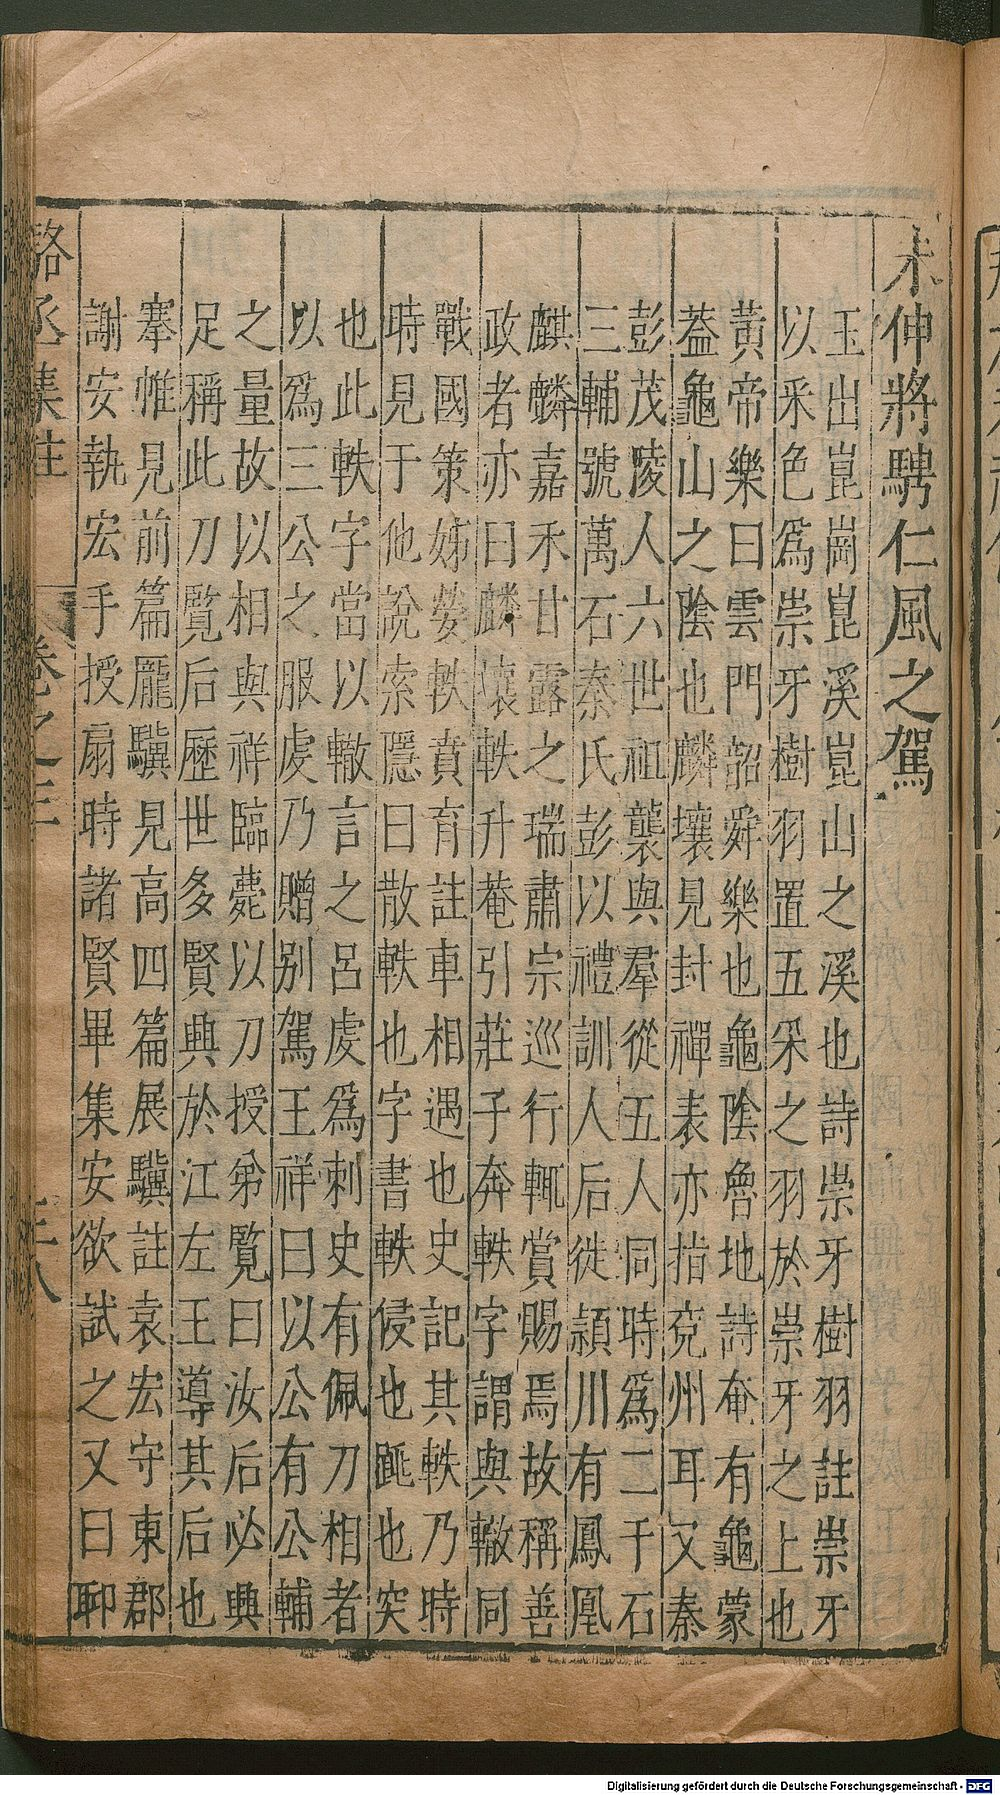 未伸將騁仁風之駕
玉出崑崗崑溪崑山之溪也詩崇牙樹羽註崇牙
以釆色爲崇牙樹羽置五采之羽於崇牙之上也
黃帝樂曰雲門韶舜樂也龜陰魯地詩奄有龜蒙
葢龜山之陰也麟壤見封禪表亦指兖州耳又秦
彭茂陵人六世祖襲與羣從五人同時爲二千石
三輔號萬石秦氏彭以禮訓人后徙潁川有鳳凰
麒麟嘉禾甘露之瑞肅宗巡行輒賞賜焉故稱善
政者亦曰麟壤軼升菴引莊子奔軼字謂與轍同
戰國策姊嫈軼賁育註車相遇也史記其軼乃時
時見于他說索隱曰散軼也字書軼侵也匯也突
也此軼字當以轍言之呂虔爲刺史有佩刀相者
以爲三公之服虔乃贈别駕王祥曰以公有公輔
之量故以相與祥臨薨以刀授弟覽曰汝后必興
足稱此刀覽后歷世多賢興於江左王導其后也
搴帷見前篇龐驥見高四篇展驥註袁宏守東郡
謝安執宏手授扇時諸賢畢集安欲試之又曰聊
駱丞集註
卷之三
三八
Digitalisierung gefördert durch die Deutsche Forschungsgemeinschaft - DFG